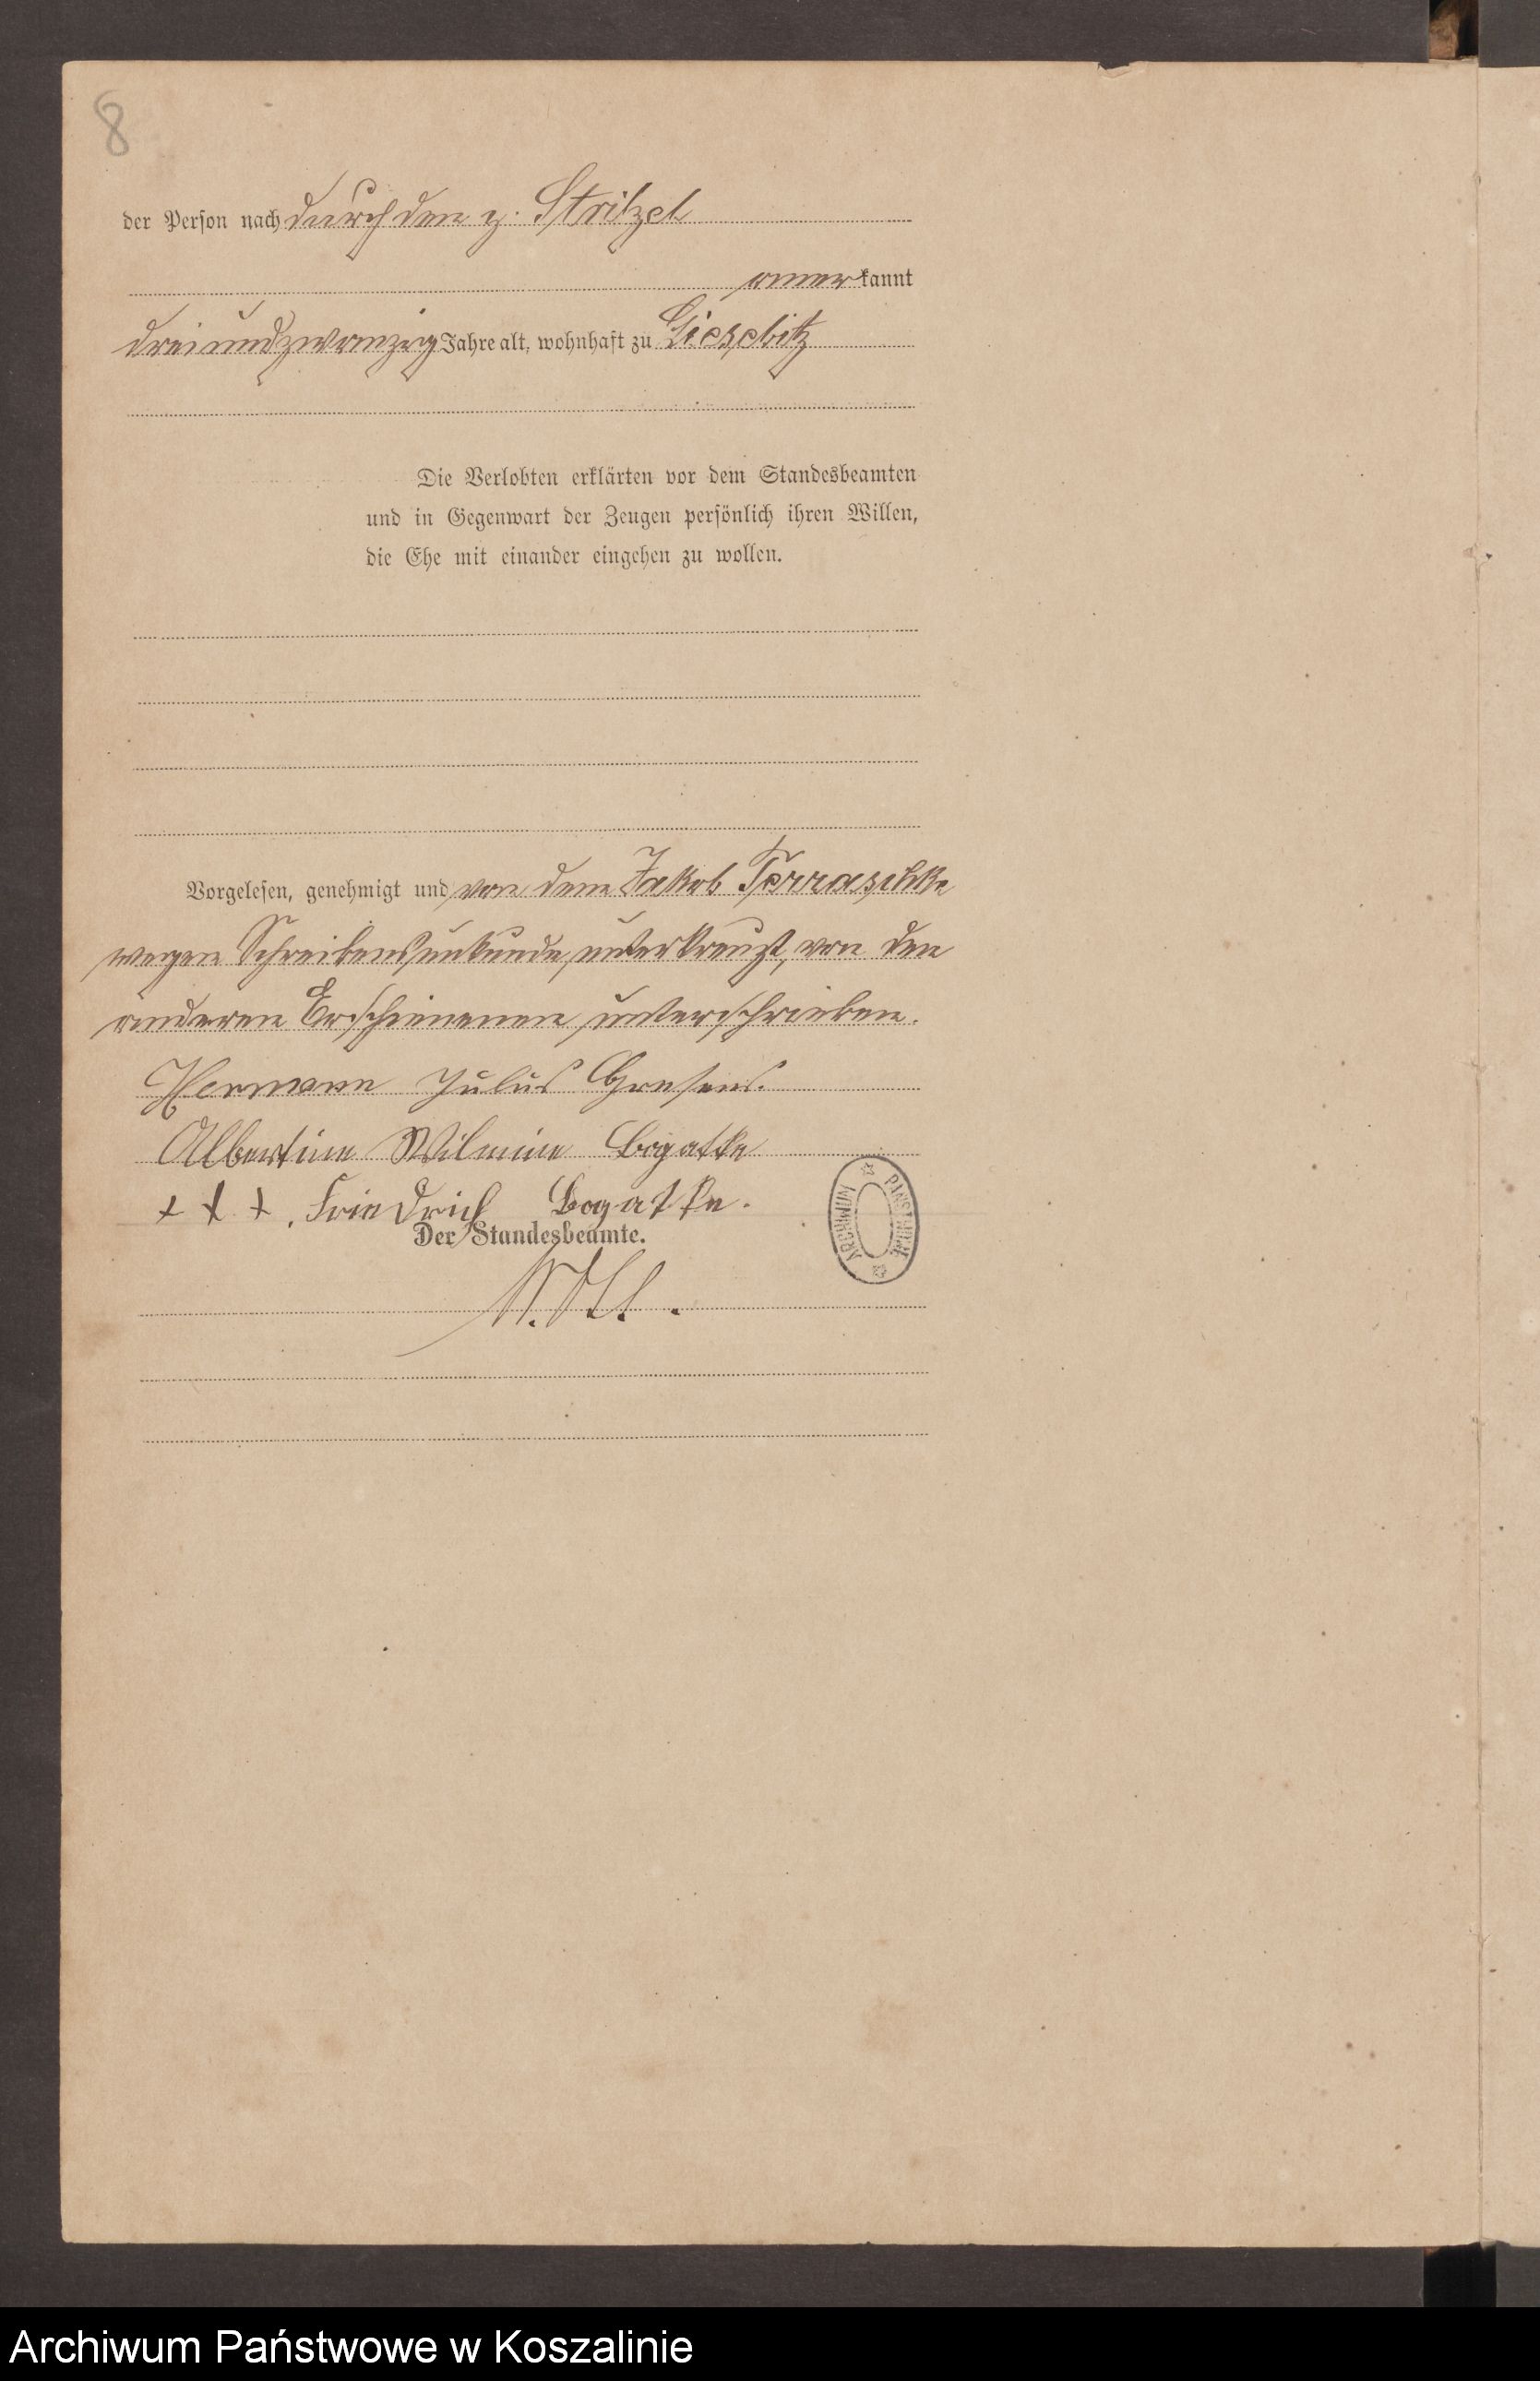 8
der Person nach durch den p. Stritzel
anerkannt
dreiundzwanzig Jahre alt, wohnhaft zu Giesebitz
Die Verlobten erklärten vor dem Standesbeamten
und in Gegenwart der Zeugen persönlich ihren Willen,
die Ehe mit einander eingehen zu wollen.
Vorgelesen, genehmigt und von dem Jakob Terraschke
wegen Schreibensunkunde unterkreuzt, von den
anderen Erschienenen unterschrieben.
Hermann Julius Gresens.
Albertine Wilmine Bogatke
+ + +. Friedrich Bogatke.
Der Standesbeamte.
ARCHIWUM PAŃSTWOWE
Archiwum Państwowe w Koszalinie